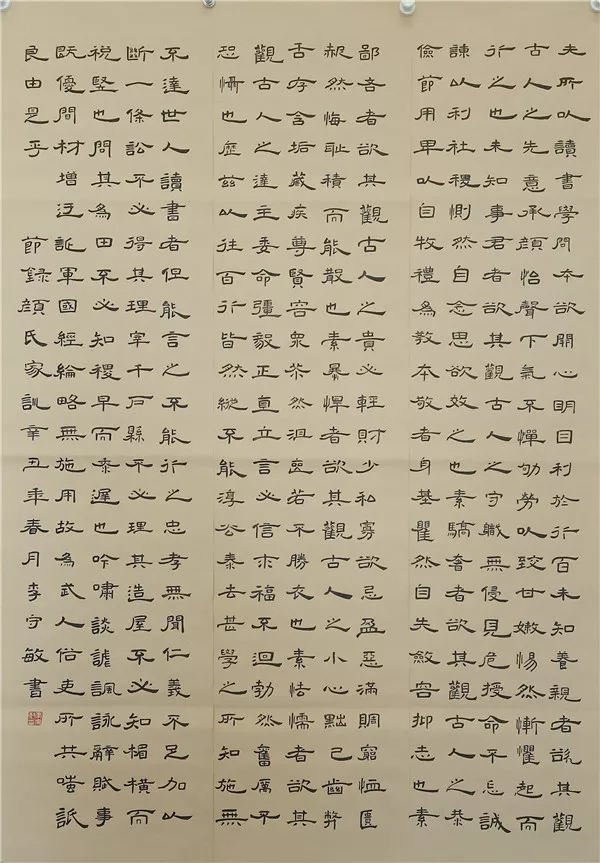 夫所以讀書學問本欲開心明目利於行百未知養親者欲其觀
古人之先意承顏怡聲下氣不憚劬勞以致甘嫩惕然慚懼起而
行之也未知事君者欲其觀古人之守職無侵見危授命不忘誠
諫以利社稷惻然自念思欲效之也素驕奢者欲其觀古人之恭
儉節用卑以自牧禮為教本敬者身基瞿然自失斂容抑志也素
鄙吝者欲其觀古人之貴必輕財少私寡欲忌盈惡滿賙窮恤匱
赧然悔恥積而能散也素暴悍者欲其觀古人之小心黜己齒弊
舌存含垢藏疾尊賢容眾苶然沮喪若不勝衣也素怯懦者欲其
觀古人之達主委命彊毅正直立言必信求福不迴勃然奮厲不
恐懾也歷茲以往百行皆然縱不能淳公泰去甚學之所知施無
不達世人讀書者但能言之不能行之忠孝無聞仁義不足加以
斷一條訟不必得其理宰千戶縣不必理其造屋不必知楣橫而
梲豎也問其為田不必知稷早而黍遲也吟嘯談謔諷詠辭賦事
既優閑材增迂誕軍國經綸略無施用故為武人俗吏所共嗤詆
良由是乎 節錄顏氏家訓辛丑年春月李守敏書